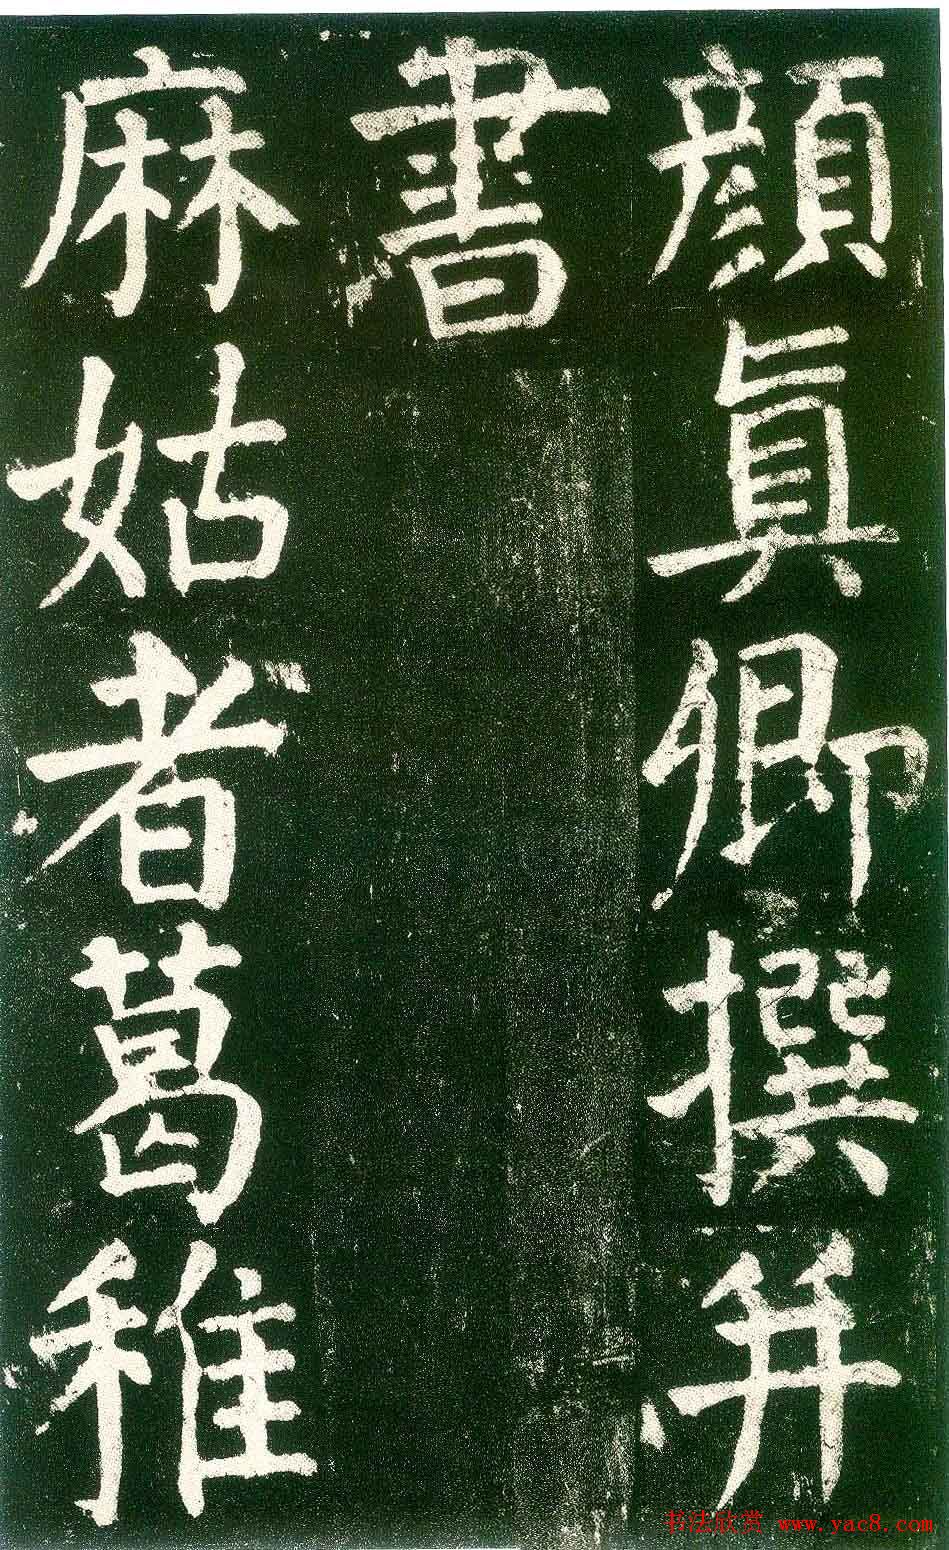 顏真卿撰并
書
麻姑者葛稚
书法欣赏 www.yac8.com